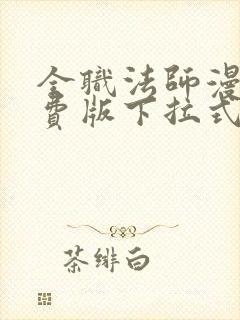 全職法師漫
費版下拉式
茶緋白